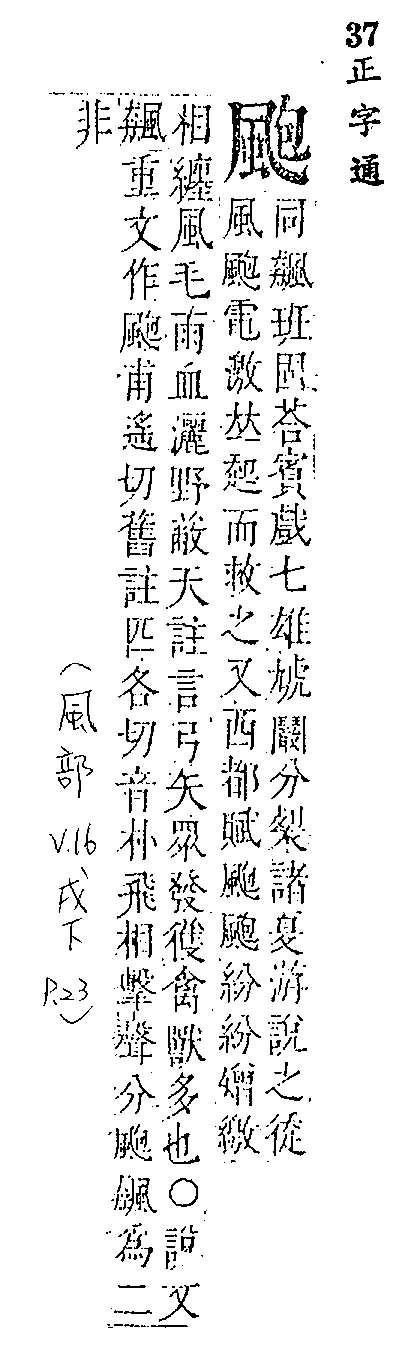 37正字通
颮
同飆班固荅賓戲七雄虓闞分裂諸夏游說之徒
風颮電激竝起而救之又西都賦颮颮紛紛矰繳
相纏風毛雨血灑野蔽天註言弓矢眾發獲禽獸多也○說文
飆重文作颮甫遙切舊註匹各切音朴飛相擊聲分颮飆為二
非
(風部 V.16、戌下 P.23)